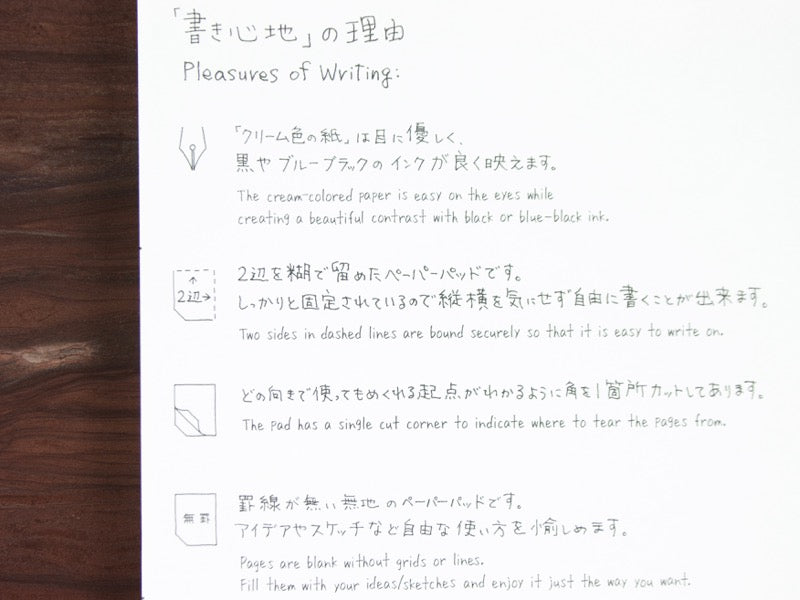 「書き心地」の理由
Pleasures of Writing:
「クリーム色の紙」は目に優しく、
黒やブルーブラックのインクが良く映えます。
The cream-colored paper is easy on the eyes while
creating a beautiful contrast with black or blue-black ink.
2辺
2辺を糊で留めたペーパーパッドです。
しっかりと固定されているので縦横を気にせず自由に書くことが出来ます。
Two sides in dashed lines are bound securely so that it is easy to write on.
どの向きで使ってもめくれる起点がわかるように角を1箇所カットしてあります。
The pad has a single cut corner to indicate where to tear the pages from.
無罫
罫線が無い無地のペーパーパッドです。
アイデアやスケッチなど自由な使い方を愉しめます。
Pages are blank without grids or lines.
Fill them with your ideas/sketches and enjoy it just the way you want.